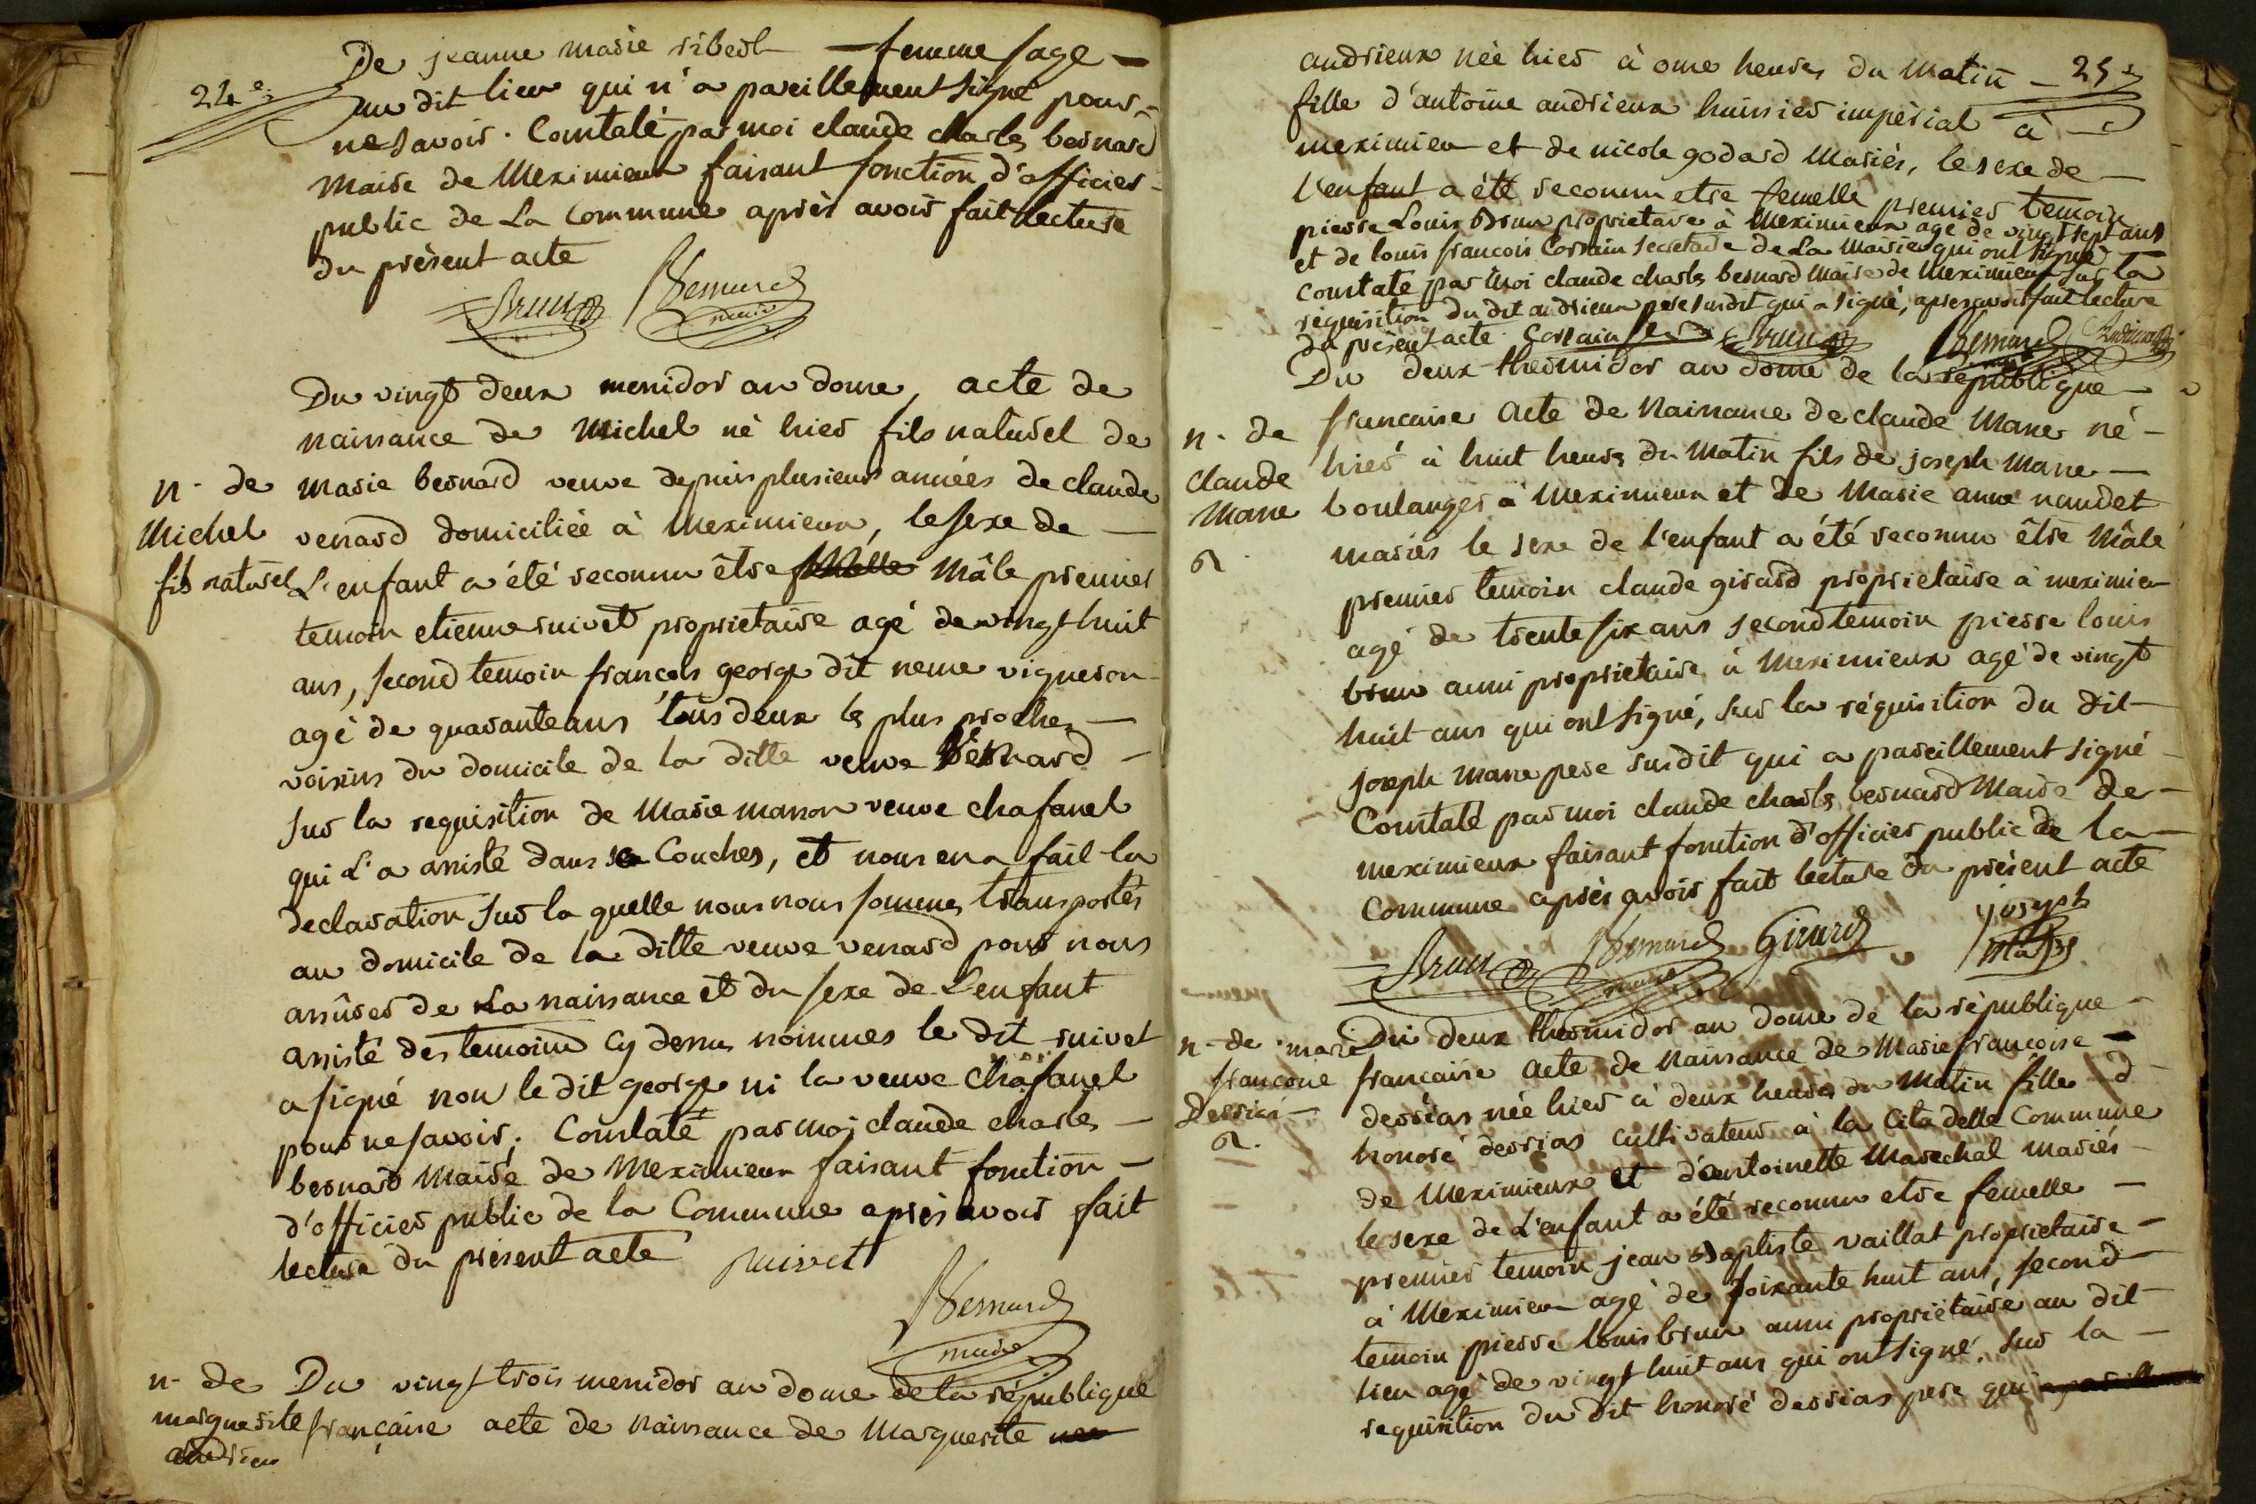 24e
De jeanne marie ribert — femme sage —
au dit lieu qui n'a pareillement signé pour
ne savoir. Constaté par moi claude charles bernard
Maire de Meximieux faisant fonction d'officier
public de La Commune après avoir fait lecture
du présent acte
Brun Bernard
maire
Du vingt deux messidor an douze, acte de
naissance de Michel né hier fils naturel de
n. de Marie bernard veuve depuis plusieurs années de claude
Michel venard domiciliée à Meximieux, le sexe de —
fils naturel L'enfant a été reconnu être femelle Mâle premier
temoin etienne ruivet proprietaire agé de vingt huit
ans, second temoin françois george dit neme vigneron
agé de quarante ans tous deux les plus proches —
voisins du domicile de la ditte veuve Vénard —
sur la requisition de Marie masson veuve chafanel
qui L'a assisté dans ses Couches, et nous en a fait la
declaration, sur la quelle nous nous sommes transportés
au domicile de la ditte veuve venard pour nous
assûrer de La naissance et du sexe de L'enfant
assisté des temoins cy dessus nommés le dit ruivet
a signé non le dit george ni la veuve Chafanel
pour ne savoir. Constaté par moi claude charles —
bernard Maire de Meximieux faisant fonction —
d'officier public de la Commune après avoir fait
lecture du présent acte ruivet
Bernard
maire
n. de Du vingt trois messidor an douze de la république
marguerite française acte de naissance de Marguerite
andrieu
25e
andrieux née hier à onze heures du Matin —
fille d'antoine andrieux huissier impérial à —
meximieu et de nicole godard Mariés, le sexe de —
l'enfant a été reconnu etre femelle premier temoin
pierre Louis Brun proprietaire à Meximieux agé de vingt sept ans
et de louis francois Cossain secretaire de La Mairie qui ont signé
constaté par Moi claude charles bernard Maire de Meximieux sur la
réquisition du dit andrieux pere susdit qui a signé, apres avoir fait lecture
du présent acte. Cossain Brun Bernard Andrieux
Du deux thermidor an douze de la république —
n. de francaise Acte de Naissance de claude Mane né —
claude hier à huit heures du Matin fils de joseph Mane —
Mane boulanger à Meximieux et de Marie anne naudet
mariés le sexe de l'enfant a été reconnu être Mâle
premier temoin claude girard proprietaire à meximieu
agé de trente six ans second temoin pierre louis
brun aussi proprietaire à Meximieux agé de vingt
huit ans qui ont signé, sur la réquisition du dit
joseph mane pere susdit qui a pareillement signé
Constaté par moi claude charles bernard Maire de —
meximieux faisant fonction d'officier public de la —
Commune après avoir fait lecture du présent acte
Brun Bernard Girard joseph
maire
n. de marie Du deux thermidor an douze de la république —
françoise francaise Acte de Naissance de Marie françoise —
Dessias — dessias née hier à deux heures du Matin fille d
honoré dessias cultivateur à la Citadelle Commune
de Meximieux et d'antoinette Marechal mariés —
le sexe de L'enfant a été reconnu etre femelle —
premier temoin jean Baptiste vaillat proprietaire —
à Meximieu agé de soixante huit ans, second
temoin pierre louis brun aussi proprietaire au dit
lieu agé de vingt huit ans qui ont signé, sur la —
requisition du dit honoré dessias pere qui a pareillement